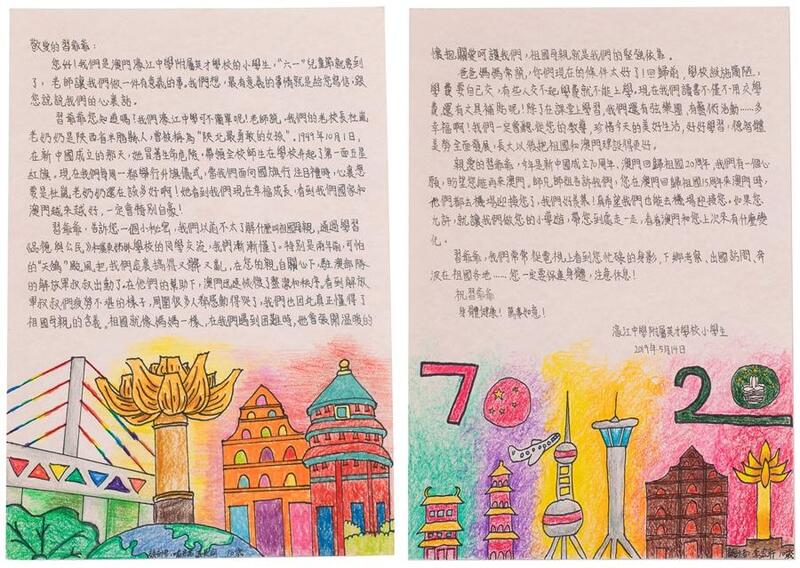 敬愛的習爺爺：
您好！我們是澳門濠江中學附屬英才學校的小學生，“六一”兒童節就要到
了，老師讓我們做一件有意義的事，我們想，最有意義的事情就是給您寫信，跟
您說說我們的心裏話。
習爺爺您知道嗎？我們濠江中學可不簡單呢！老師說，我們的老校長杜嵐
老奶奶是陝西省米脂縣人，曾被稱為“陝北最勇敢的女孩”。1949年10月1日，
在新中國成立的那天，她冒着生命危險，帶領全校師生在學校升起了第一面五星
紅旗。現在我們每周一都舉行升旗儀式，當我們面向國旗行注目禮時，心裏想
要是杜嵐老奶奶還在該多好啊！她看到我們現在幸福成長，看到我們國家和
澳門越來越好，一定會特別自豪！
習爺爺，告訴您一個小秘密，我們以前不太了解什麼叫祖國母親，通過學習
《品德與公民》和學校的同學交流，我們漸漸懂了。特別是兩年前，可怕
的“天鴿”颱風把我們這裏搞得又髒又亂，在您的親自關心下，駐澳部隊
的解放軍叔叔出動了。在他們的幫助下，澳門迅速恢復了整潔和秩序。看到解放
軍叔叔們疲勞不堪的樣子，周圍很多人都感動得哭了，我們也因此真正懂得了
祖國母親的含義。祖國就像媽媽一樣，在我們遇到困難時，她會張開溫暖的
懷抱關愛呵護我們，祖國母親就是我們的堅強依靠。
爸爸媽媽常說，你們現在的條件太好了！回歸前，學校設施簡陋，
學費要自己交，有些人交不起學費就不能上學，現在我們讀書不僅不用交學
費，還有文具補貼呢！除了在課堂上學習，我們還有弦樂團，有藝術活動……多
幸福啊！我們一定會聽從您的教導，珍惜今天的美好生活，好好學習，德智體
美勞全面發展，長大以後把祖國和澳門建設得更好。
親愛的習爺爺，今年是新中國成立70周年、澳門回歸祖國20周年，我們有一個心
願，盼望您能再來澳門。師兄師姐告訴我們，您在澳門回歸祖國15周年來澳門時，
他們都去機場迎接您了，我們好羨慕！真希望我們也能去機場迎接您。如果您
允許，就讓我們做您的小導遊，帶您到處走一走，看看澳門和您上次來有什麼變
化。
習爺爺，我們常常從電視上看到您忙碌的身影，下鄉考察、出國訪問、奔
波在祖國各地……您一定要保重身體，注意休息！
祝習爺爺
身體健康！萬事如意！
濠江中學附屬英才學校小學生
2019年5月14日
70
20